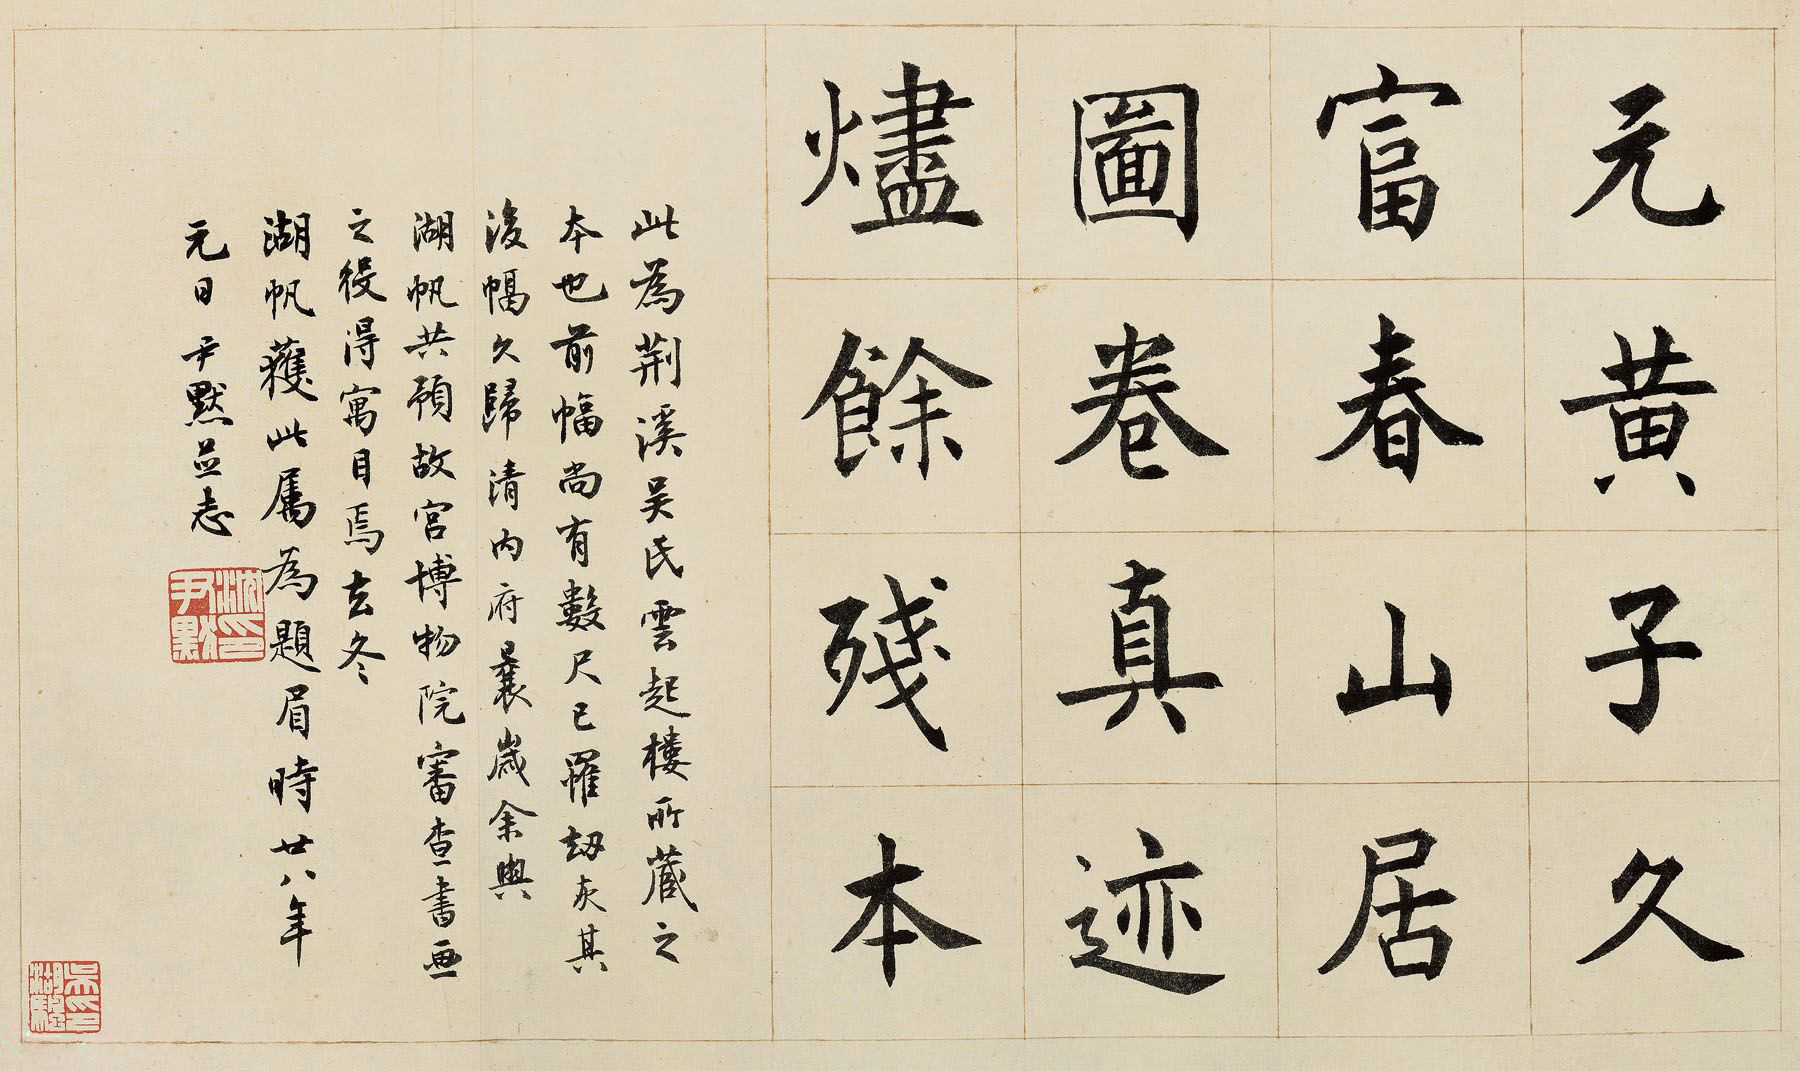 元黄子久
富春山居
圖卷真迹
燼餘殘本
此為荆溪吴氏雲起樓所蔵之
本也前幅尚有數尺已罹劫灰其
後幅久歸清内府曩嵗余與
湖帆共預故宫博物院審查書画
之役得寓目焉去冬
湖帆獲此屬為題眉時廿八年
元日尹默並志
沈尹默印
吴湖帆印